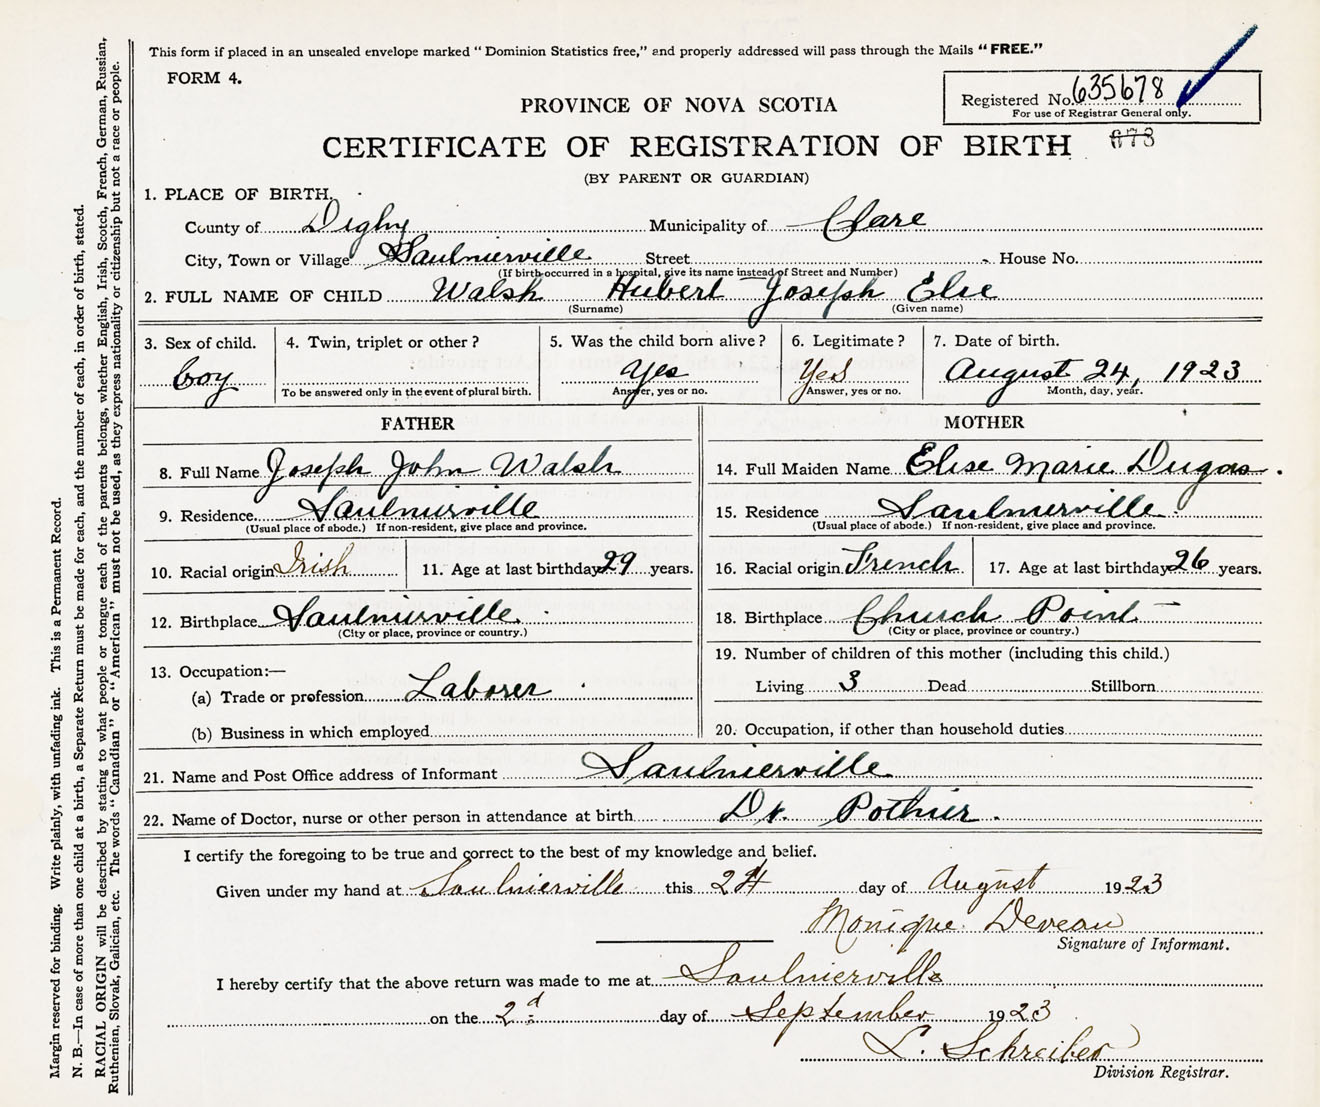 This form if placed in an unsealed envelope marked "Dominion Statistics free," and properly addressed will pass through the Mails "FREE."
FORM 4.
Registered No. 635678
For use of Registrar General only.
PROVINCE OF NOVA SCOTIA
CERTIFICATE OF REGISTRATION OF BIRTH
(BY PARENT OR GUARDIAN)
1. PLACE OF BIRTH.
County of Digby Municipality of Clare
City, Town or Village Saulnierville Street House No.
(If birth occurred in a hospital, give its name instead of Street and Number)
2. FULL NAME OF CHILD Walsh Hubert Joseph Elie
(Surname) (Given name)
3. Sex of child. 4. Twin, triplet or other? 5. Was the child born alive? 6. Legitimate? 7. Date of birth.
boy yes Yes August 24, 1923
To be answered only in the event of plural birth. Answer, yes or no. Answer, yes or no. Month, day, year.
FATHER MOTHER
8. Full Name Joseph John Walsh 14. Full Maiden Name Elise Marie Dugas.
9. Residence Saulnierville 15. Residence Saulnierville
(Usual place of abode.) If non-resident, give place and province. (Usual place of abode.) If non-resident, give place and province.
10. Racial origin Irish 11. Age at last birthday 29 years. 16. Racial origin French 17. Age at last birthday 26 years.
12. Birthplace Saulnierville 18. Birthplace Church Point
(City or place, province or country.) (City or place, province or country.)
13. Occupation:— 19. Number of children of this mother (including this child.)
(a) Trade or profession Laborer Living 3 Dead Stillborn
(b) Business in which employed 20. Occupation, if other than household duties
21. Name and Post Office address of Informant Saulnierville
22. Name of Doctor, nurse or other person in attendance at birth Dr. Pothier.
I certify the foregoing to be true and correct to the best of my knowledge and belief.
Given under my hand at Saulnierville this 24 day of August 1923
Monique Deveau
Signature of Informant.
I hereby certify that the above return was made to me at Saulnierville
on the 2d day of September 1923
L. Schreiber
Division Registrar.
Margin reserved for binding. Write plainly, with unfading ink. This is a Permanent Record.
N. B.—In case of more than one child at a birth, a Separate Return must be made for each, and the number of each, in order of birth, stated.
RACIAL ORIGIN will be described by stating to what people or tongue each of the parents belongs, whether English, Irish, Scotch, French, German, Russian,
Ruthenian, Slovak, Galician, etc. The words "Canadian" or "American" must not be used, as they express nationality or citizenship but not a race or people.